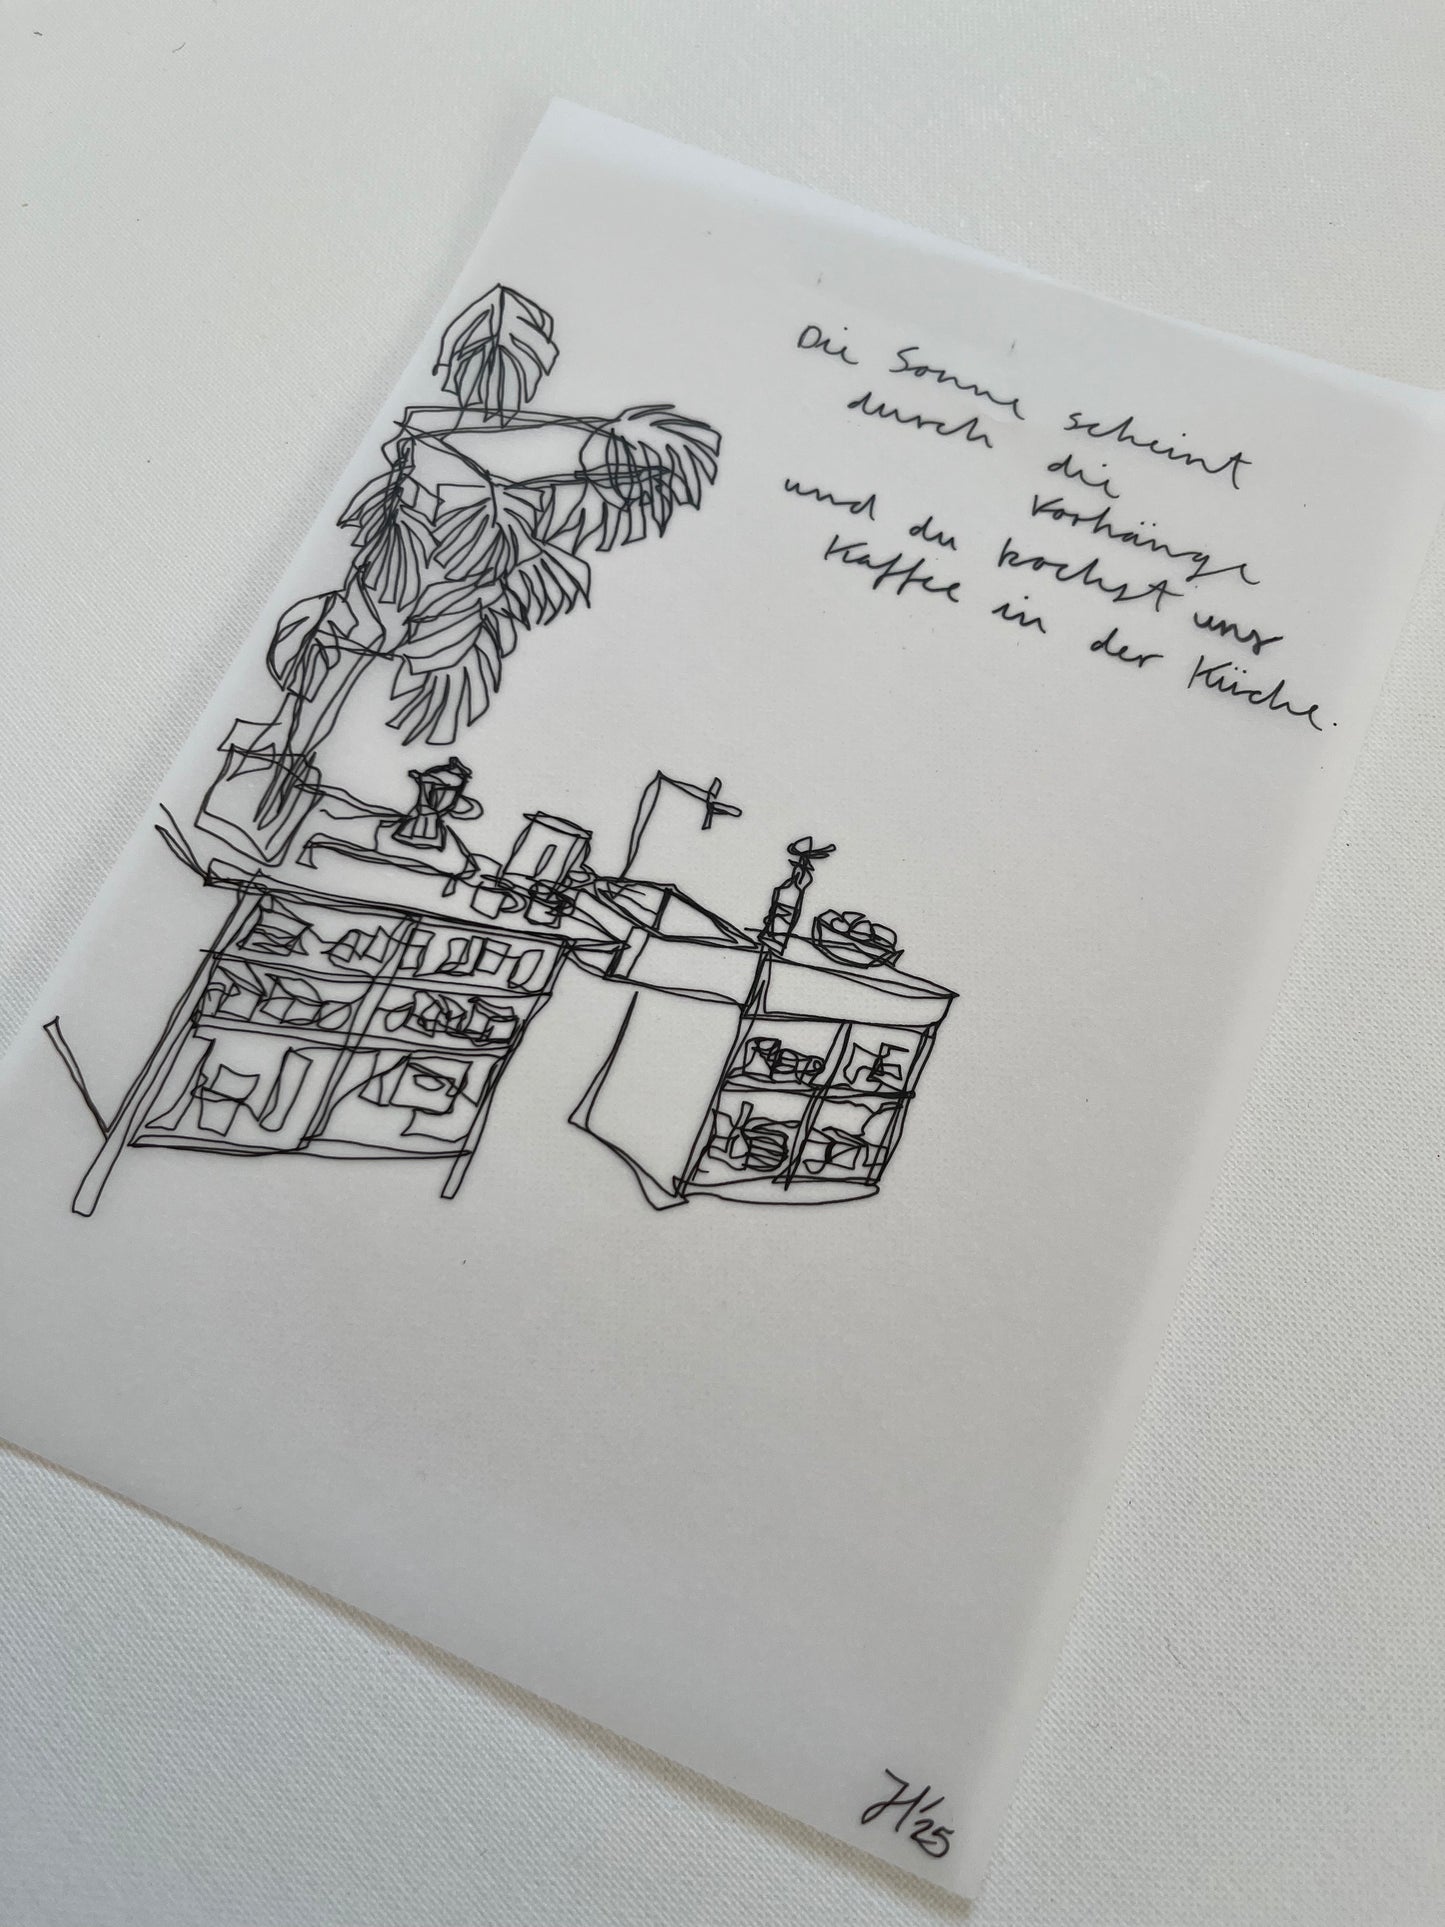 Die Sonne scheint
durch die Vorhänge
und du kochst uns
Kaffee in der Küche.
H'25